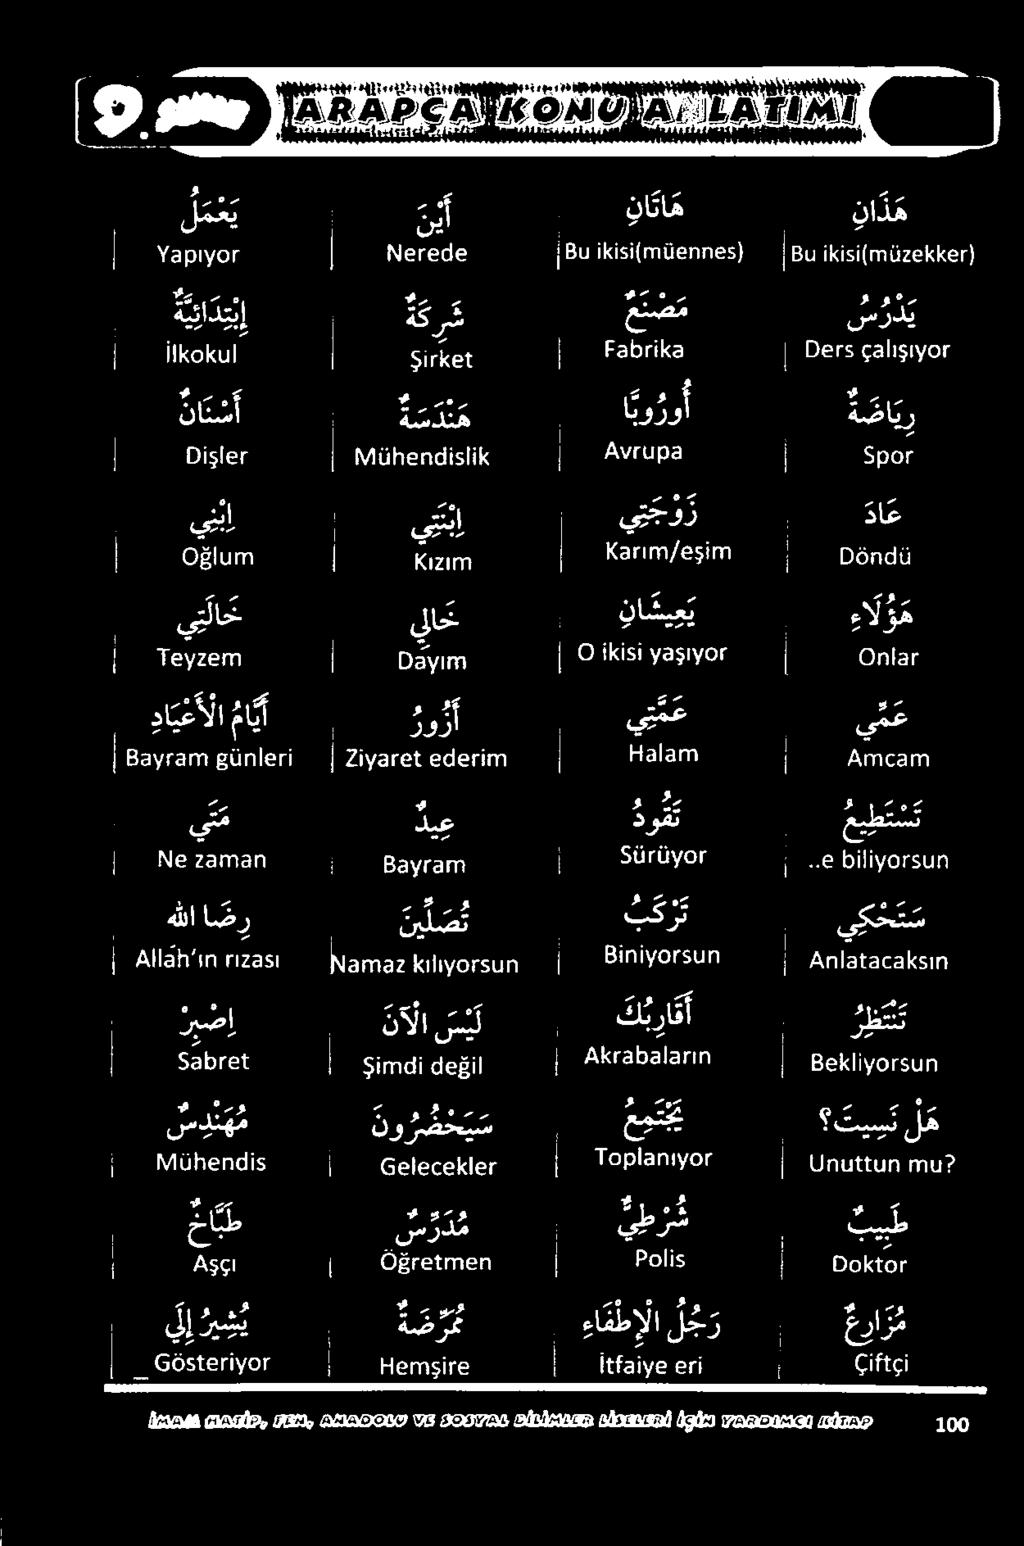 9. SINIF ARAPÇA KONU ANLATIMI
هَذَانِ هَاتَانِ أَيْنَ يَعْمَلُ
Yapıyor Nerede Bu ikisi(müennes) Bu ikisi(müzekker)
يَدْرُسُ مَصْنَعٌ شَرِكَةٌ إِبْتِدَائِيَّةٌ
İlkokul Şirket Fabrika Ders çalışıyor
رِيَاضَةٌ أُورُوبَّا هَنْدَسَةٌ أَسْنَانٌ
Dişler Mühendislik Avrupa Spor
عَادَ زَوْجَتِي إِبْنَتِي إِبْنِي
Oğlum Kızım Karım/eşim Döndü
هَؤُلَاءِ يَعِيشَانِ خَالِي خَالَتِي
Teyzem Dayım O ikisi yaşıyor Onlar
عَمِّي عَمَّتِي أَزُورُ أَيَّامُ الْأَعْيَادِ
Bayram günleri Ziyaret ederim Halam Amcam
تَسْتَطِيعُ تَقُودُ عِيدٌ مَتَي
Ne zaman Bayram Sürüyor ..e biliyorsun
سَتَحْكِي تَرْكَبُ تُصَلِّينَ رِضَا الله
Allâh'ın rızası Namaz kılıyorsun Biniyorsun Anlatacaksın
تَنْتَظِرُ أَقَارِبُكَ لَيْسَ الْآنَ إِصْبِرْ
Sabret Şimdi değil Akrabaların Bekliyorsun
هَلْ نَسِيتَ؟ يَجْتَمِعُ سَيَحْضُرُونَ مُهَنْدِسٌ
Mühendis Gelecekler Toplanıyor Unuttun mu?
طَبِيبٌ شُرْطِيٌّ مُدَرِّسٌ طَبَّاخٌ
Aşçı Öğretmen Polis Doktor
مُزَارِعٌ رَجُلُ الْإِطْفَاءِ مُمَرِّضَةٌ يُشِيرُ إِلَي
Gösteriyor Hemşire İtfaiye eri Çiftçi
İMAM HATİP, FEN, ANADOLU VE SOSYAL BİLİMLER LİSELERİ İÇİN YARDIMCI KİTAP 100